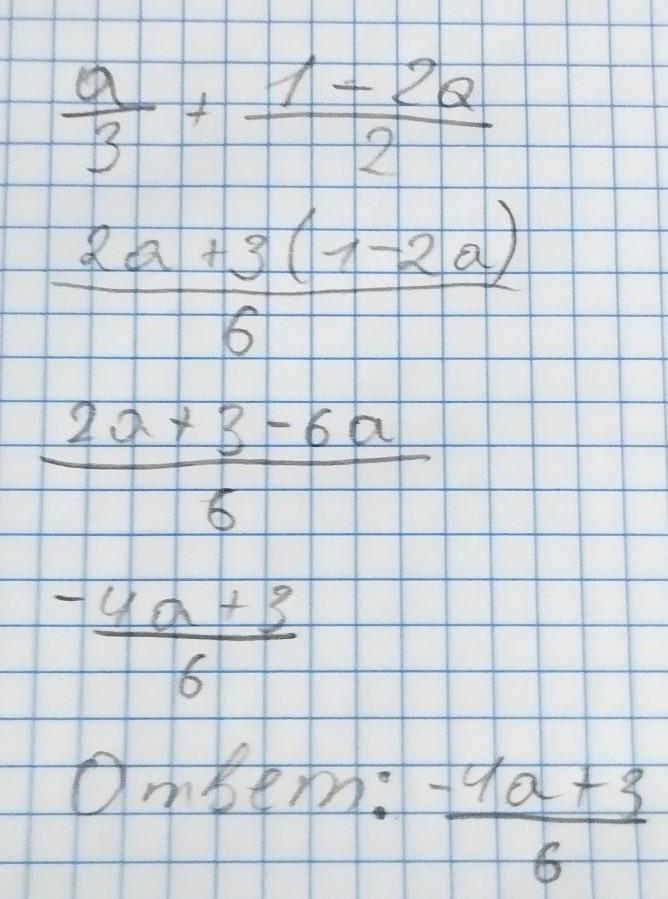 a/3 + (1 - 2a)/2
(2a + 3(1 - 2a))/6
(2a + 3 - 6a)/6
(-4a + 3)/6
Ответ: (-4a + 3)/6